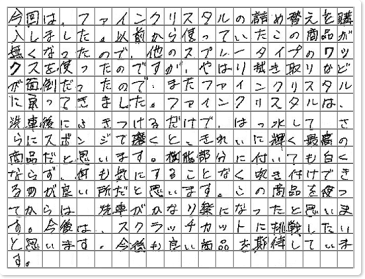 今回は、ファインクリスタルの詰め替えを購
入しました。以前から使っていたこの商品が
無くなったので、他のスプレータイプのワッ
クスを使ったのですが、やはり拭き取りなど
が面倒だったので、またファインクリスタル
に戻ってきました。ファインクリスタルは、
洗車後にふきつけるだけで、はっ水して、さ
らにスポンジで磨くと、きれいに輝く最高の
商品だと思います。樹脂部分に付いても白く
ならず、何も気にすることなく吹き付けでき
るのが良い所だと思います。この商品を使っ
てからは、洗車がかなり楽になったと思いま
す。今後は、スクラッチカットに挑戦したい
と思います。今後も良い商品を期待していま
す。